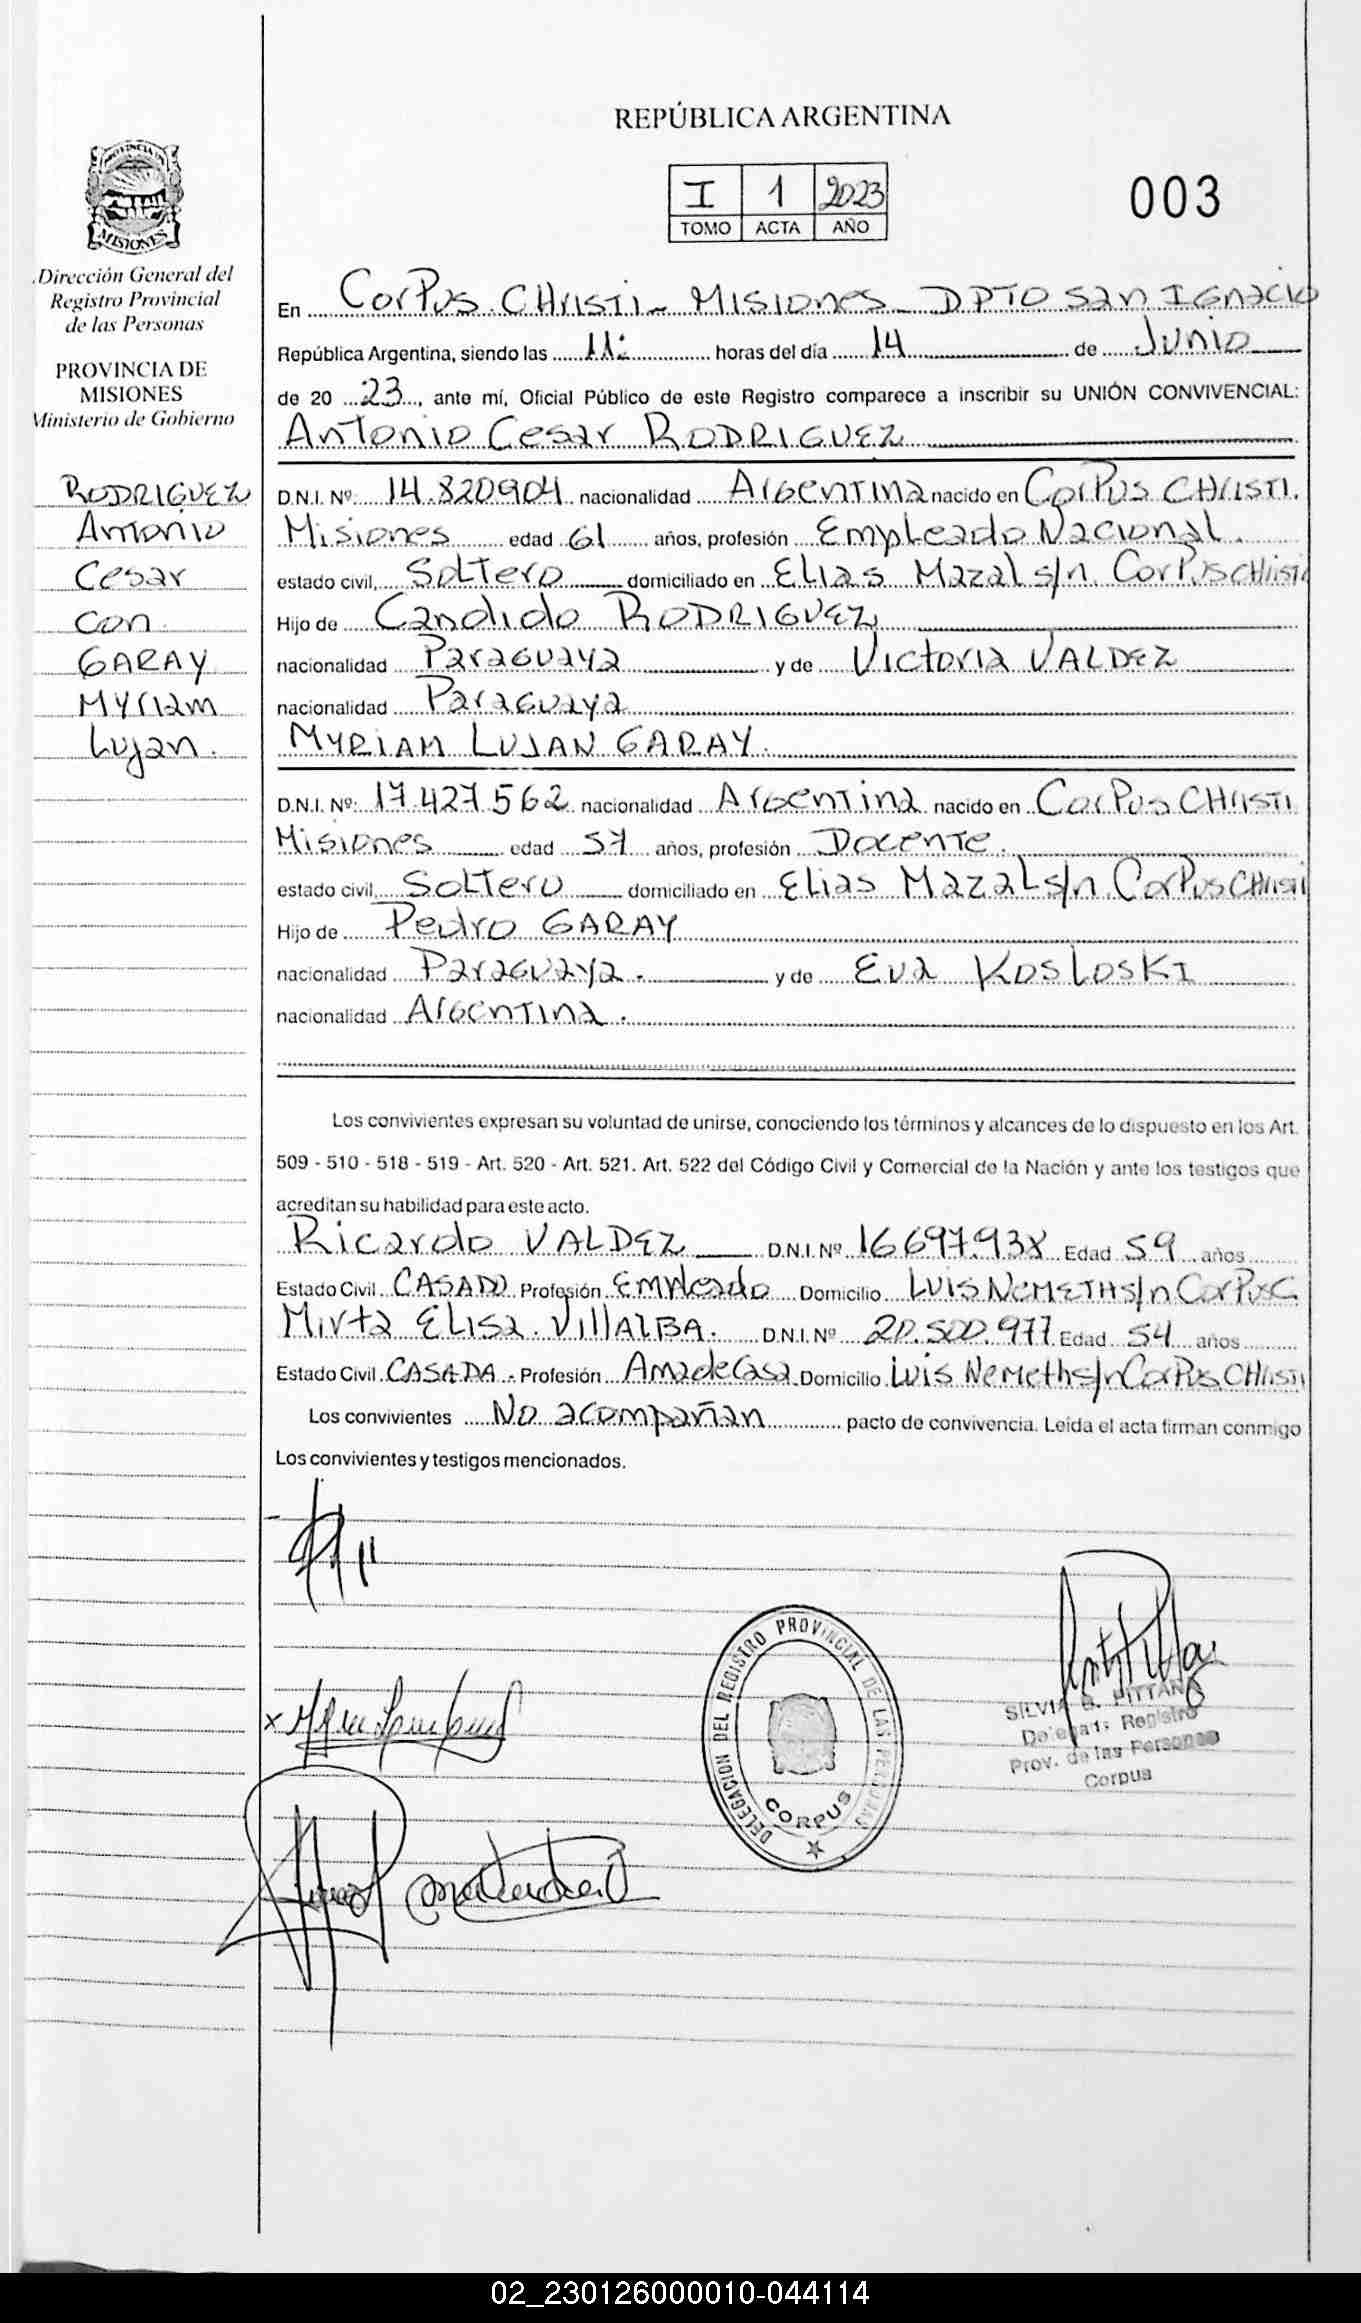 REPÚBLICA ARGENTINA
I 1 2023
TOMO ACTA AÑO
003
PROVINCIA DE
MISIONES
Dirección General del
Registro Provincial
de las Personas
PROVINCIA DE
MISIONES
Ministerio de Gobierno
RODRIGUEZ
Antonio
Cesar
con
GARAY
Myriam
Lujan.
En Corpus CHristi - Misiones DPTO San Ignacio
República Argentina, siendo las 11: horas del día 14 de Junio
de 20 23, ante mí, Oficial Público de este Registro comparece a inscribir su UNIÓN CONVIVENCIAL:
Antonio Cesar RODRIGUEZ
D.N.I. Nº: 14.820904 nacionalidad Argentina nacido en Corpus CHristi.
Misiones edad 61 años, profesión Empleado Nacional.
estado civil, Soltero domiciliado en Elias Mazal s/n Corpus CHristi
Hijo de Candido RODRIGUEZ
nacionalidad Paraguaya y de Victoria VALDEZ
nacionalidad Paraguaya
MYRIAM LUJAN GARAY.
D.N.I. Nº: 17.427.562 nacionalidad Argentina nacido en Corpus CHristi
Misiones edad 57 años, profesión Docente.
estado civil, Soltero domiciliado en Elias Mazal s/n Corpus CHristi
Hijo de Pedro GARAY
nacionalidad Paraguaya. y de Eva Kosloski
nacionalidad Argentina.
Los convivientes expresan su voluntad de unirse, conociendo los términos y alcances de lo dispuesto en los Art.
509 - 510 - 518 - 519 - Art. 520 - Art. 521. Art. 522 del Código Civil y Comercial de la Nación y ante los testigos que
acreditan su habilidad para este acto.
Ricardo VALDEZ D.N.I. Nº 16697.938 Edad 59 años
Estado Civil CASADO Profesión Empleado Domicilio Luis Nemeth s/n Corpus C.
Mirta Elisa VillALBA. D.N.I. Nº 20.500.977 Edad 54 años
Estado Civil CASADA - Profesión Ama de Casa Domicilio Luis Nemeth s/n Corpus CHristi
Los convivientes No acompañan pacto de convivencia. Leída el acta firman conmigo
Los convivientes y testigos mencionados.
DELEGACION DEL REGISTRO PROVINCIAL DE LAS PERSONAS
CORPUS
SILVIA PITTANA
Delegada Registro
Prov. de las Personas
Corpus
02_230126000010-044114